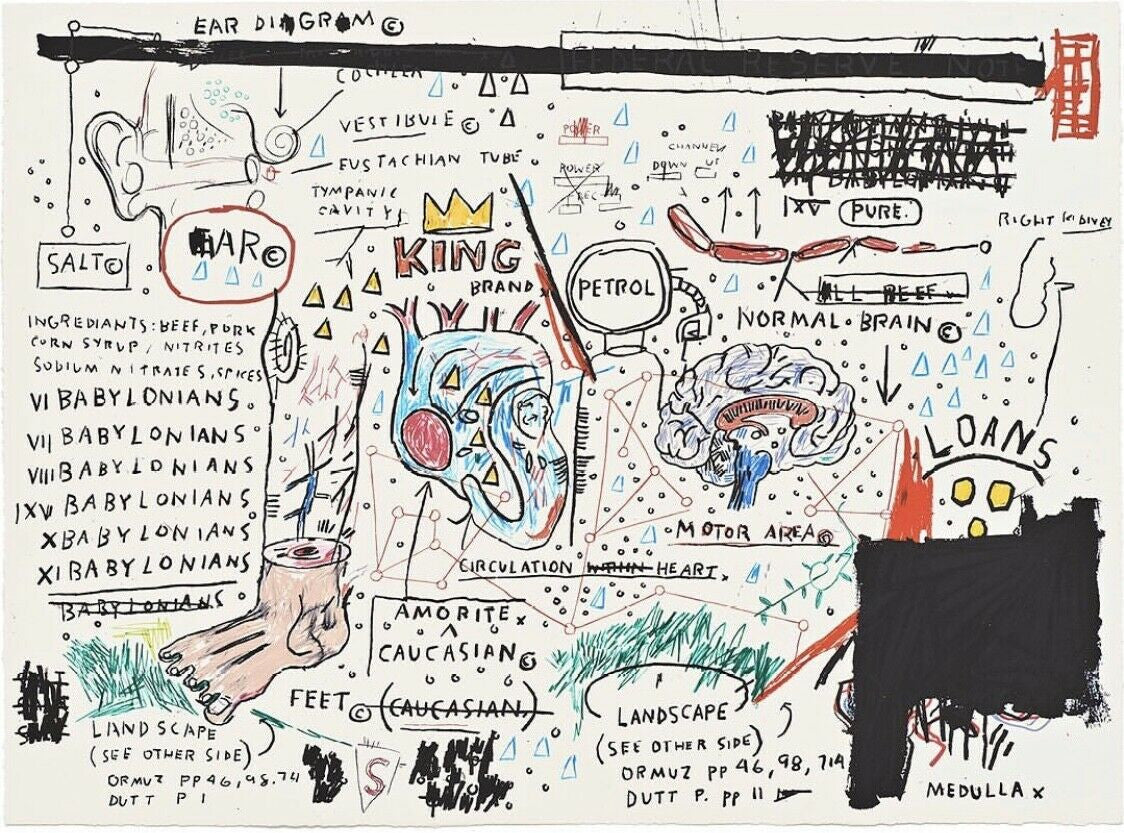 EAR DIAGRAM ©
FEDERAL RESERVE NOTE
COCHLEA
VESTIBULE ©
EUSTACHIAN TUBE
TYMPANIC
CAVITY
SALT ©
EAR ©
KING
BRAND
POWER
POWER
REC
CHANNEL
DOWN UP
PETROL
BABYLONIANS
IXV PURE.
RIGHT KIDNEY
ALL BEEF
NORMAL BRAIN ©
INGREDIANTS: BEEF, PORK
CORN SYRUP, NITRITES
SODIUM NITRATES, SPICES
VI BABYLONIANS
VII BABYLONIANS
VIII BABYLONIANS
IXV BABYLONIANS
X BABYLONIANS
XI BABYLONIANS
BABYLONIANS
LOANS
MOTOR AREA ©
CIRCULATION WITHIN HEART
AMORITE
CAUCASIAN ©
FEET © (CAUCASIAN)
LANDSCAPE
(SEE OTHER SIDE)
ORMUZ PP 46, 98, 74
DUTT P 1
S
LANDSCAPE
(SEE OTHER SIDE)
ORMUZ PP 46, 98, 714
DUTT P. PP 11
MEDULLA x